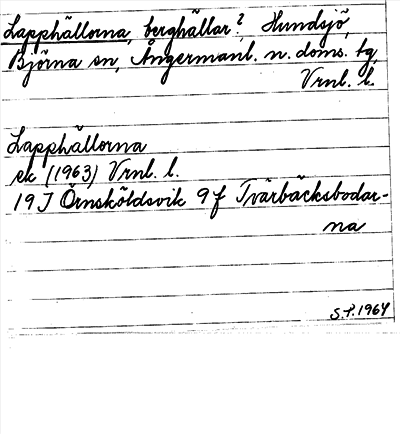 Lapphällorna, berghällar?, Hundsjö,
Björna sn, Ångermanl. n. doms. tg,
Vrnl. l.
Lapphällorna
ek (1963) Vrnl. l.
19J Örnsköldsvik 9f Tvärbäcksbodar-
na
S.P. 1964